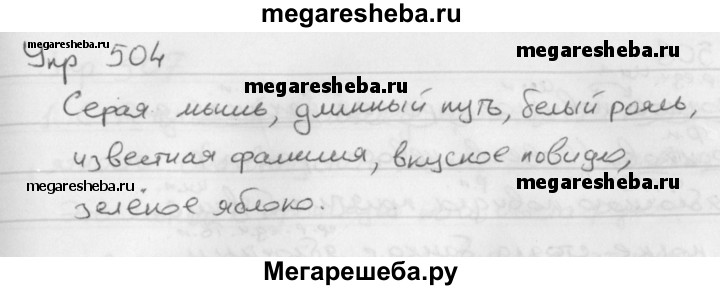 megaresheba.ru
Упр 504
megaresheba.ru
megaresheba.ru
Серая мышь, длинный путь, белый рояль,
известная фамилия, вкусное повидло,
megaresheba.ru
megaresheba.ru
зелёное яблоко.
Мегарешеба.ру